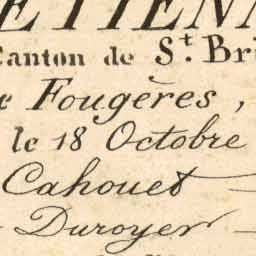 ETIENN
Canton de St. Bri
Fougères,
le 18 Octobre
Cahouet
Duroyer